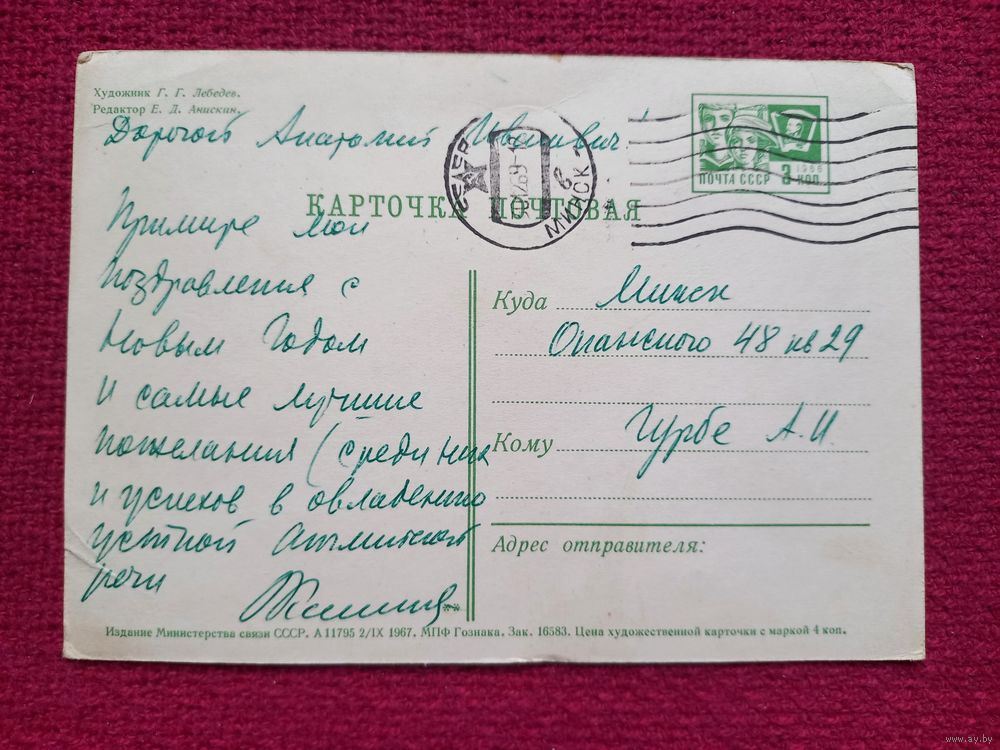 Художник Г. Г. Лебедев.
Редактор Е. Д. Анискин.
Дорогой Анатолий Иванович!
ПОЧТА СССР 3 КОП.
1966
СССР
МИНСК
КАРТОЧКА ПОЧТОВАЯ
Примире мои
поздравления с
Новым Годом
и самые лучшие
пожелания (среди них
и успехов в овладению
устной английской
речи
Куда Минск
Опанского 48 кв 29
Кому Гурбе А.И.
Адрес отправителя:
Издание Министерства связи СССР. А 11795 2/IX 1967. МПФ Гознака. Зак. 16583. Цена художественной карточки с маркой 4 коп.
www.ay.by